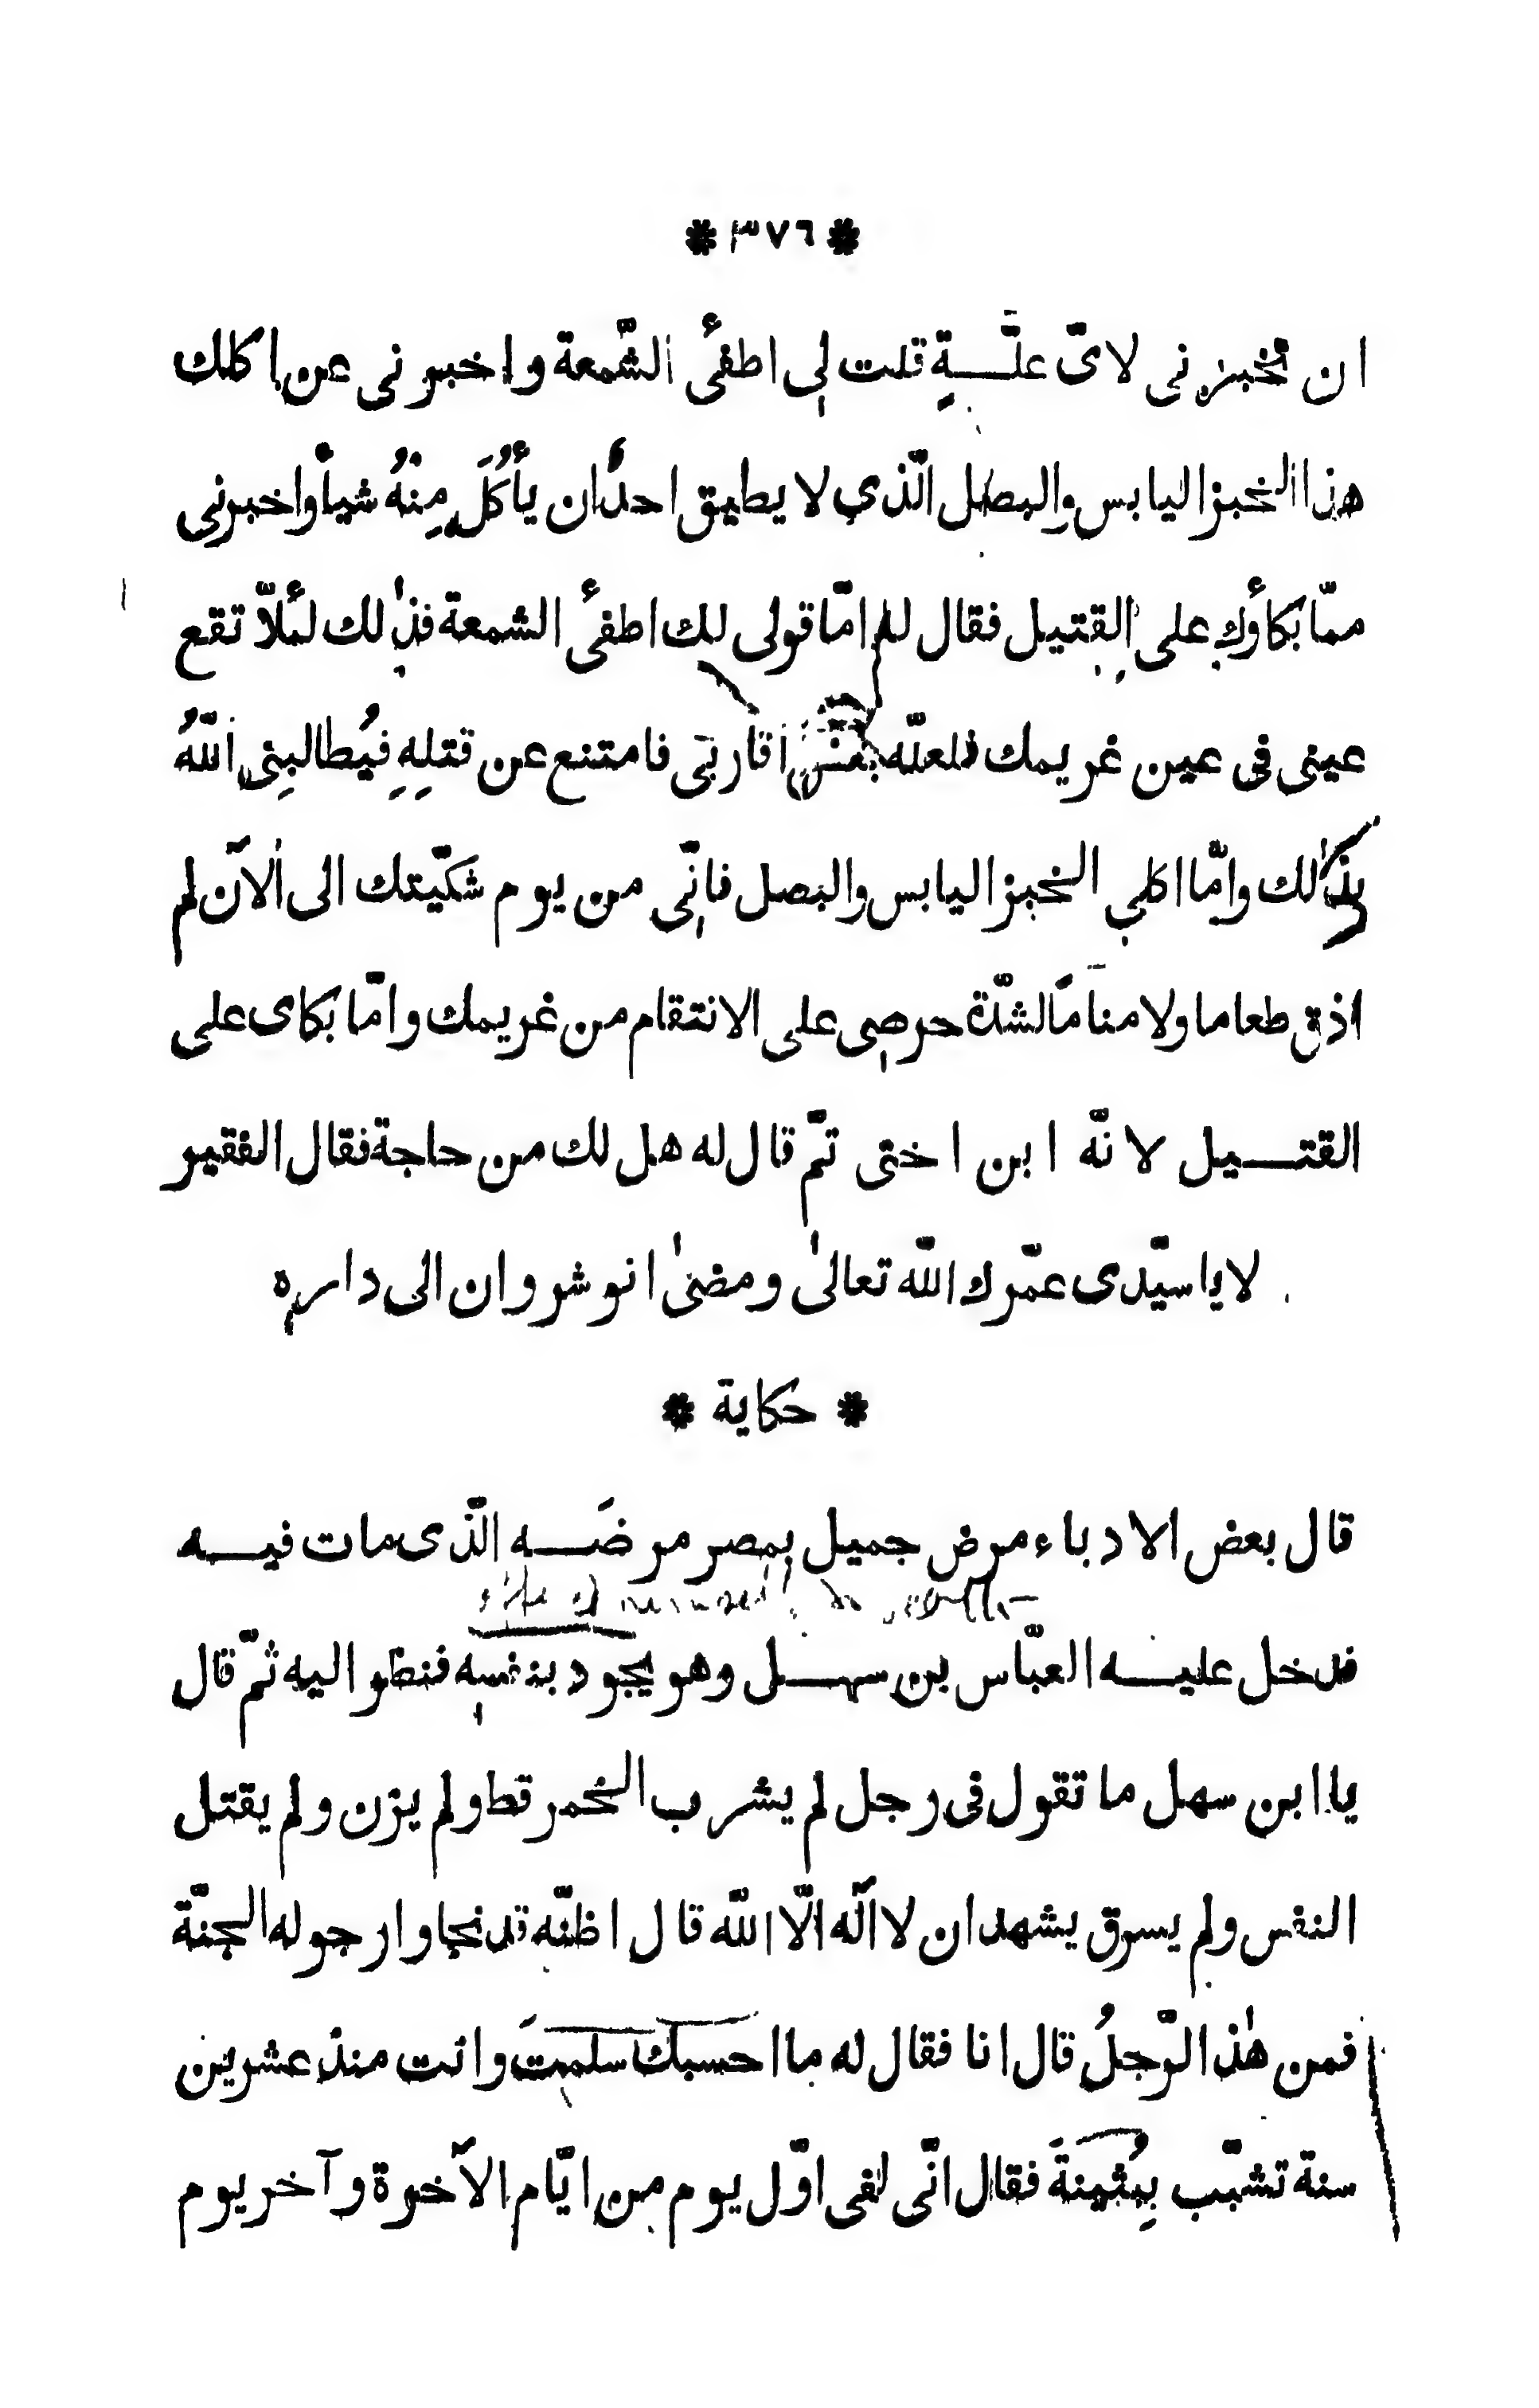 * ٣٧٦ *
ان تخبرنى لاىّ علّـــةٍ قلت لى اطفئ الشّمعة واخبرنى عن اكلك
هذا الخبز اليابس والبصل الّذى لا يطيق احدٌ ان يأكُلَ مِنْهُ شيأً واخبرنى
ممّا بكاؤك على القتيل فقال له امّا قولى لك اطفئ الشمعة فذٰلك لئلّا تقع
عينى فى عين غريمك فلعلّه اقاربى فامتنع عن قتلِهِ فيُطالبِنى اللّٰهُ
بذٰلك وامّا اكلى الخبز اليابس والبصل فانّى من يوم شكّيتك الى الاٰن لم
اذق طعاما ولا منامًا لشدّة حرصى على الانتقام من غريمك وامّا بكاى على
القتـــيل لانّه ابن اختى ثمّ قال له هل لك من حاجة فقال الفقير
لا يا سيّدى عمّرك اللّٰه تعالىٰ ومضىٰ انوشروان الى داره
* حكاية *
قال بعض الادباء مرض جميل بمصر مرضَـــه الّذى مات فيـــه
فدخل عليـــه العبّاس بن سهـــل وهو يجود بنفسِه فنظر اليه ثمّ قال
يا ابن سهل ما تقول فى رجل لم يشرب الخمر قط ولم يزن ولم يقتل
النفس ولم يسرق يشهد ان لا الٰه الّا اللّٰه قال اظنّه قد نجا وارجو له الجنّة
فمن هٰذا الرّجلُ قال انا فقال له ما احسبك سلمتَ وانت منذ عشرين
سنة تشبّب بِبُثينةَ فقال انّى لفى اوّل يوم من ايّام الآخرة وآخر يوم